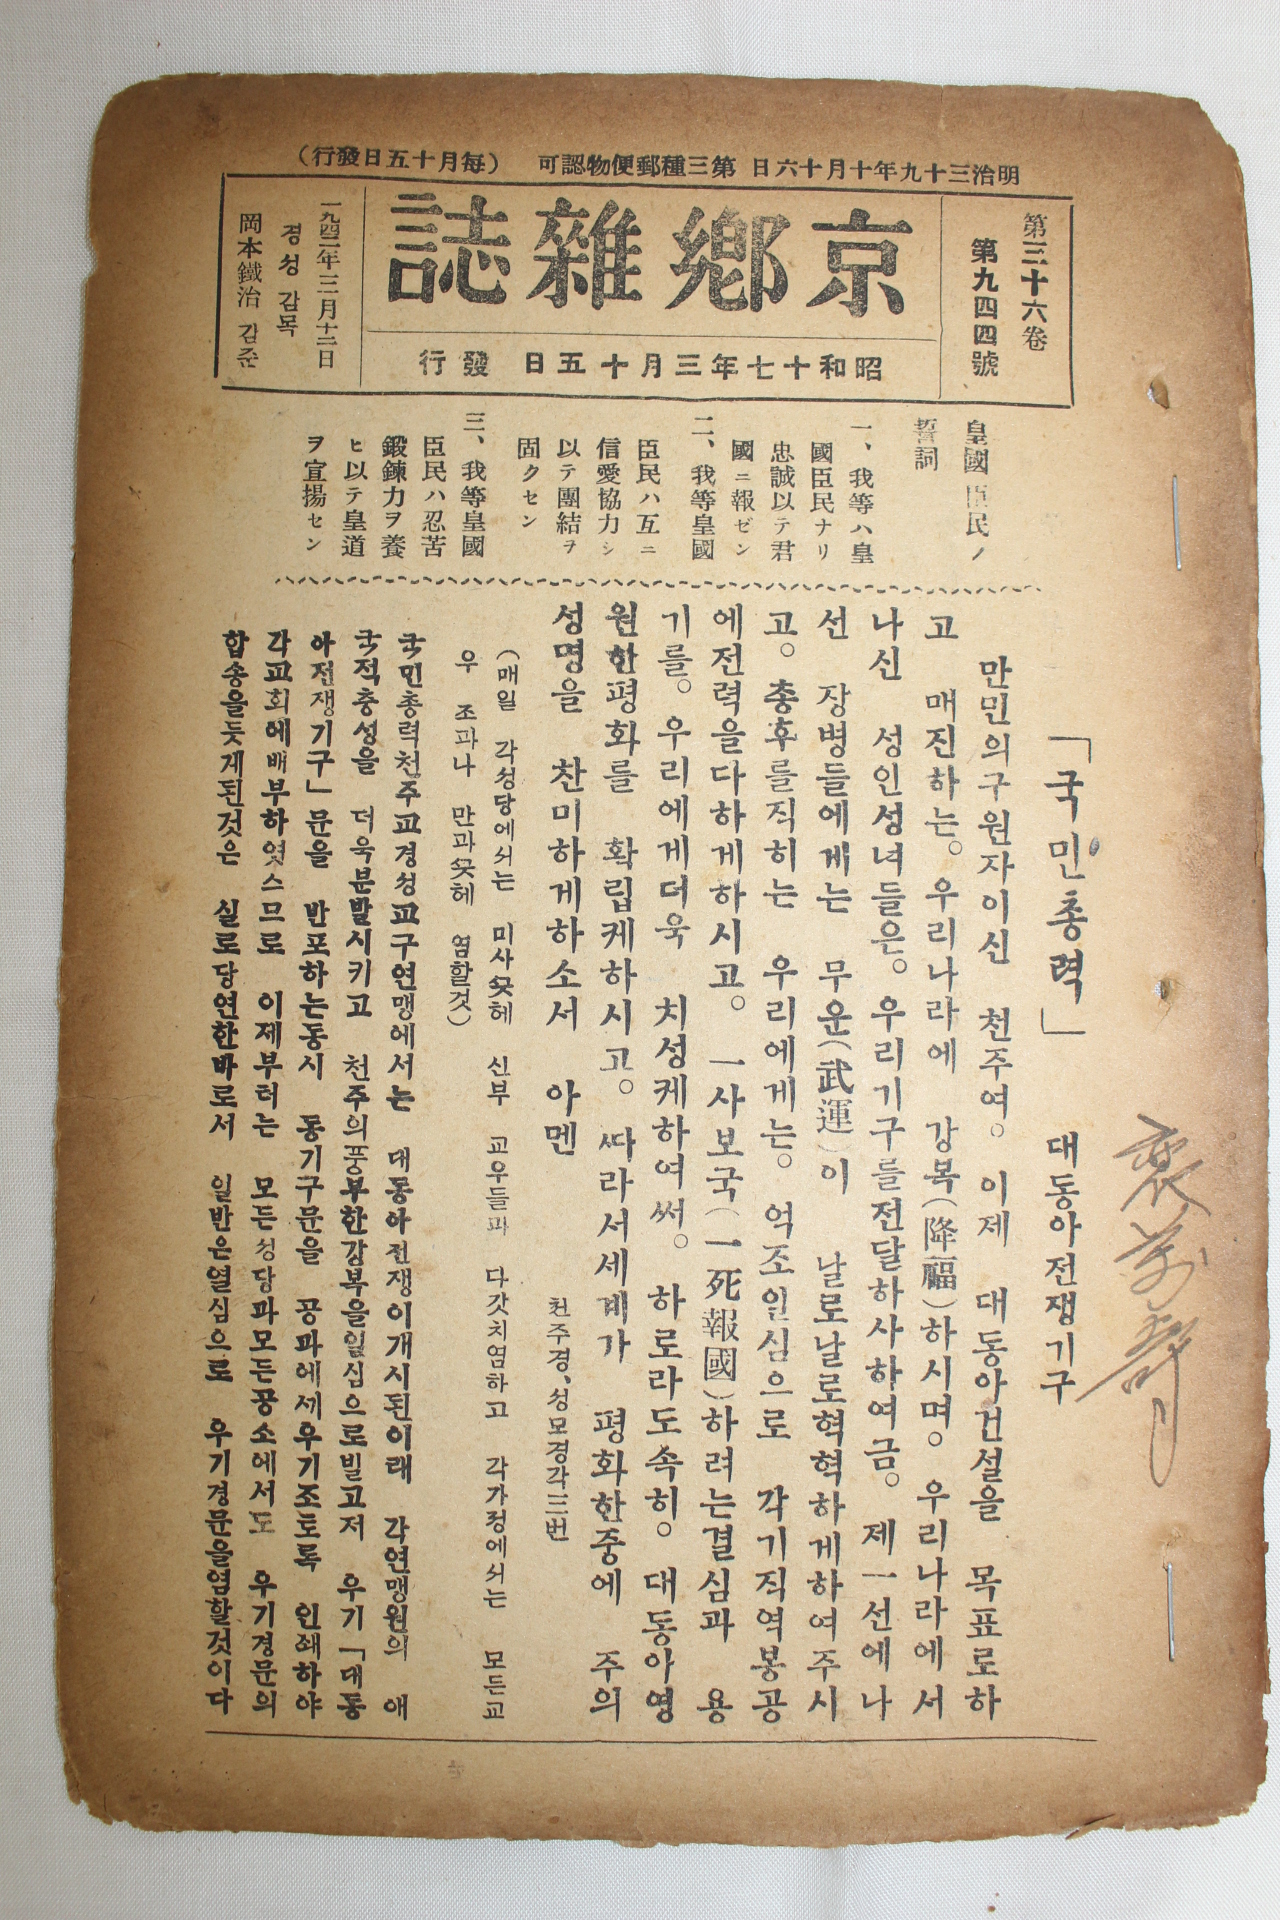 明治三十九年十月十六日 第三種郵便物認可 (毎月十五日發行)
第三十六卷
第九四四號
京鄕雜誌
昭和十七年三月十五日 發行
一九四二年三月十二日
경성 감목
岡本鐵治 감준
皇國臣民ノ
誓詞
一、我等ハ皇
國臣民ナリ
忠誠以テ君
國ニ報ゼン
二、我等皇國
臣民ハ互ニ
信愛協力シ
以テ團結ヲ
固クセン
三、我等皇國
臣民ハ忍苦
鍛鍊力ヲ養
ヒ以テ皇道
ヲ宣揚セン
「국민총력」 대동아전쟁기구
만민의구원자이신 천주여。이제 대동아건설을 목표로하
고 매진하는。우리나라에 강복(降福)하시며。우리나라에서
나신 성인성녀들은。우리기구를전달하사하여금。제一선에나
선 장병들에게는 무운(武運)이 날로날로혁혁하게하여주시
고。총후를직히는 우리에게는。억조일심으로 각기직역봉공
에전력을다하게하시고。一사보국(一死報國)하려는결심과 용
기를。우리에게더욱 치성케하여써。하로라도속히。대동아영
원한평화를 확립케하시고。따라서세계가 평화한중에 주의
성명을 찬미하게하소서 아멘
천주경、성모경각三번
(매일 각성당에서는 미사끗헤 신부 교우들과 다갓치염하고 각가정에서는 모든교
우 조과나 만과끗헤 염할것)
국민총력천주교경성교구연맹에서는 대동아전쟁이개시된이래 각연맹원의 애
국적충성을 더욱분발시키고 천주의풍부한강복을일심으로빌고저 우기「대동
아전쟁기구」문을 반포하는동시 동기구문을 공과에세우기조토록 인쇄하야
각교회에배부하엿스므로 이제부터는 모든성당과모든공소에서도 우기경문의
합송을듯게된것은 실로당연한바로서 일반은열심으로 우기경문을염할것이다